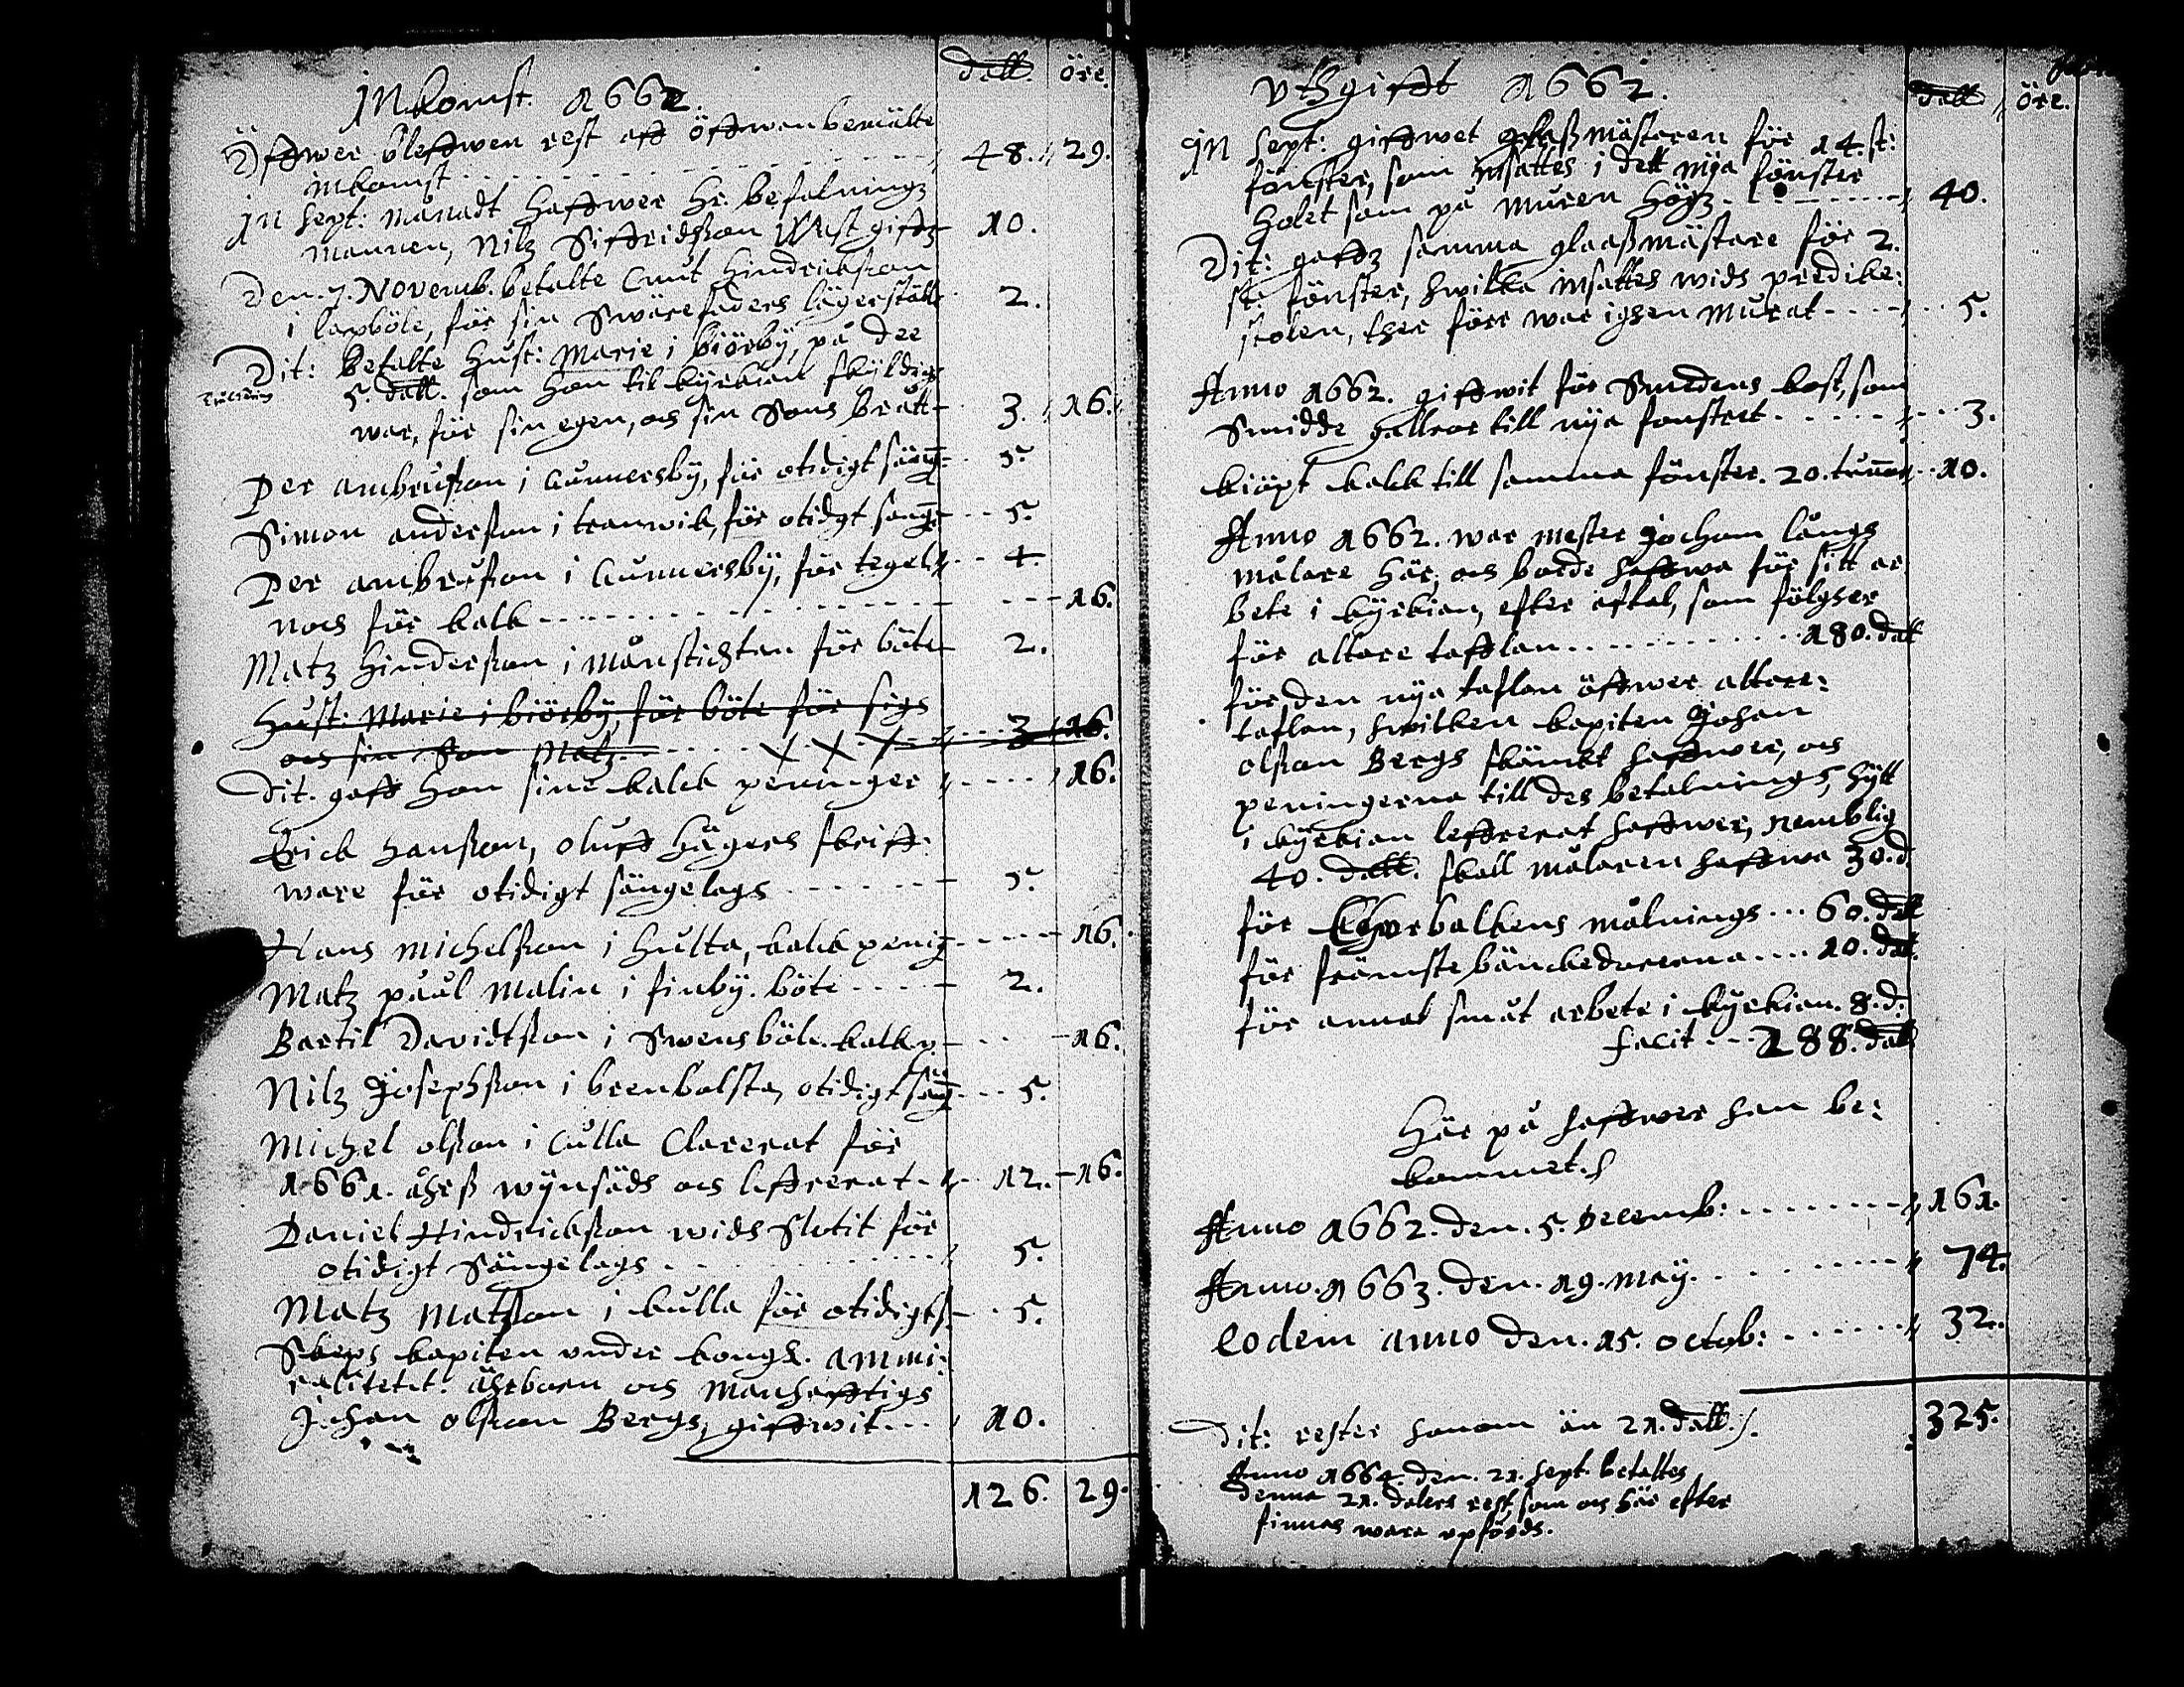 Inkomst. 1662.
dall. öre
Öffwer bleffwen rest aff öffwenbemälte
inkomst - - - 48. 29.
In Sept: månadt haffwer Hr. befalningz
mannen, Nilz Siffridsson Wast gifft 10.
Den. 7. Novemb. betalte Cnut Hindricksson
i laxböle, för sin Swärefaders lägerställe 2.
Dit: betalte hust: Marie i biörby, på dee
5. dall. som hon til kyrkian skyldig
war, för sin egen, och sin Sons brått 3. 16.
Per ambrusson i Gunnersby, för otidigt säng: 5.
Simon andersson i tranwik, för otidgt sang: 5.
Per ambrusson i Gunnersby, för tegel 4.
noch för kalk - - - 16.
Matz hindersson i månstichtan för böte 2.
Hust: Marie i biörby, för böte för sigh
och sin Son Matz. - - - 3 16.
Dit. gaff hon sine kalck peninger - - - 16.
Erick hansson, oluff hägers skriff-
ware för otidigt sängelagh - - - 5.
Hans michelsson i hulta, kalck penig - - - 16.
Matz påål Malin i finby. böte - - - 2.
Bertil Davidtsson i Swensböle. kalk p. - - 16.
Nilz Josephsson i brenbolsta, otidigt säng - - - 5.
Michel olsson i Culla Clarerat för
1661. åhrß wijnsädh och leffrerat - 12. - 16.
Daniel Hindricksson widh Slotit för
otidigt Sängelagh - - - 5.
Matz Matzson i kulla för otidigt s. - 5.
Skeps kapiten under kongl. ammi:
ralitetet. ährborn och Manhafftigh
Johan olsson Bergh, giffwit - - 10.
126. 29.
Vthgifft 1662.
dall. öre.
In Sept: giffwet glaßmästaren för 14. st:
fönster, som insattes i dett nya fönster
holet som på muren högz. - - - 40.
Dit: gaffz samma glaaßmästare för 2.
st: fönster, hwilka insattes widh predike:
stolen, ther förr war ighen murat - - - 5.
Anno 1662. giffwit för Smedens kost, som
Smidde gallror till nya fonstert - - - 3.
kiöpt kalck till samma fönster. 20. tunnor - - 10.
Anno 1662. war mester Jocham lång
målare här, och borde haffwa för sitt ar
bete i kyrkian, efter aftal, som fölgher
för altare tafflan - - - 180. dall
för den nya taflan öffwer altare:
taflan, hwilken kapiten Johan
olsson Bergh skänckt haffwer, och
peningerna till des betalningh, hijtt
i kyrkian leffrerat haffwer, nemblig
40. dall. skall målaren haffwa 30. d.
för Chorbalkens målningh - - - 60. dall
för främste bänkedorerna - - - 10. dall.
för annat smat arbete i kyrkian. 8. d.
facit - - - 288. dall
Här på haffwer han be:
kommet.
Anno 1662. den. 5. Decemb: - - - 161.
Anno. 1663. den. 19. May. - - - 74.
Eodem anno den. 15. octob: - - - 32.
325.
Dit: rester honom än 21. dall.
Anno 1664. den. 21. Sept. betaltes
denna 21. dalers rest, som och här efter
finnes wara upförds.